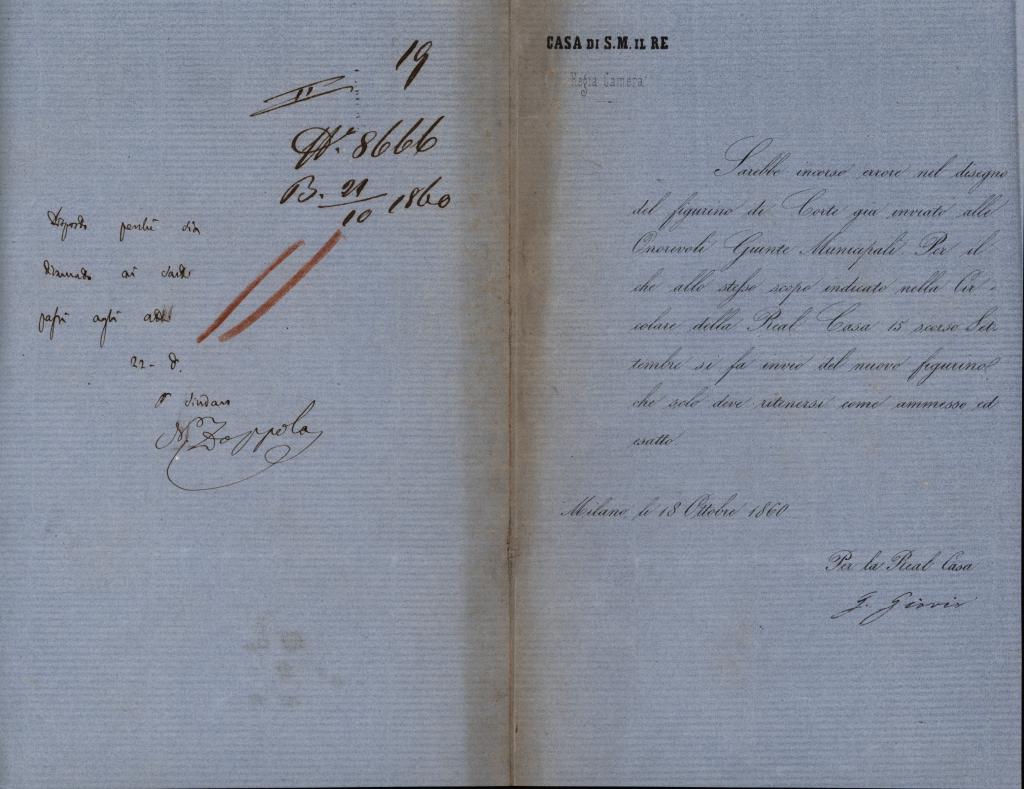 19
II
N.º 8666
B. 21/10 1860
Disposto perchè sia
diramato ai
passi agli atti
22 - d.
Il Sindaco
Zoppola
CASA DI S.M. IL RE
Regia Camera
Sarebbe incorso errore nel disegno
del figurino di Corte già inviato alle
Onorevoli Giunte Municipali. Per il
che allo stesso scopo indicato nella Cir-
colare della Real Casa 15 scorso Set-
tembre si fa invio del nuovo figurino
che solo deve ritenersi come ammesso ed
esatto
Milano, li 18 Ottobre 1860
Per la Real Casa
G.